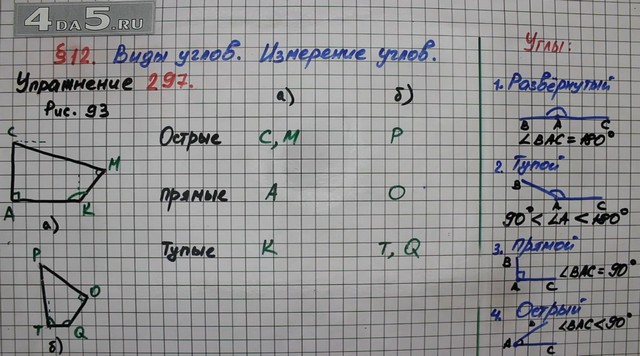 4DA5.RU
§12. Виды углов. Измерение углов.
Упражнение 297.
Рис. 93
а) б)
Острые C, M P
прямые A O
Тупые K T, Q
C
M
A K
а)
P
O
T Q
б)
Углы:
1. Развернутый
B A C
∠BAC = 180°
2. Тупой
B
A C
90° < ∠A < 180°
3. Прямой
B
A C ∠BAC = 90°
4. Острый
B ∠BAC < 90°
A C